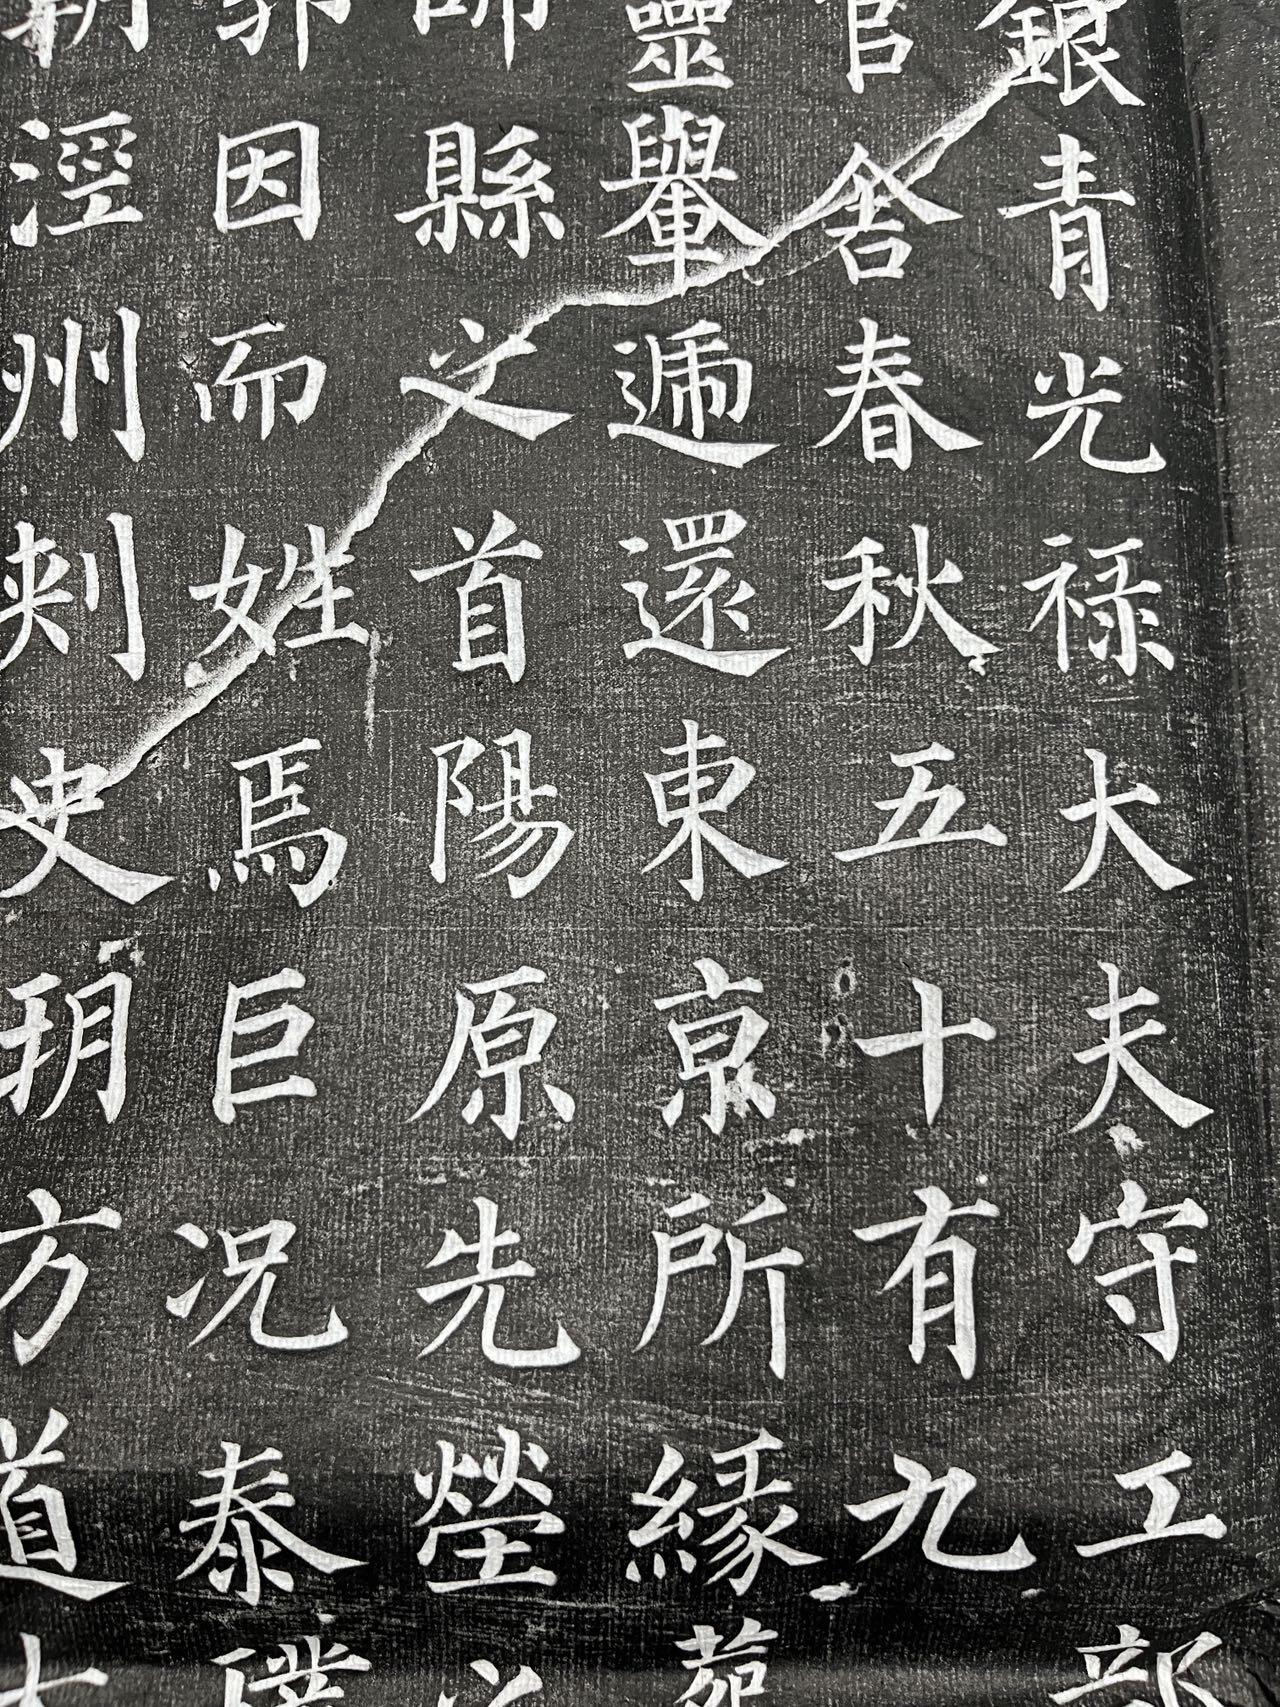 銀青光禄大夫守工部
官舍春秋五十有九
靈轝遞還東京所緣葬
師縣之首陽原先塋之
郭因而姓焉巨况泰璞
朝涇州刾史朔方道大